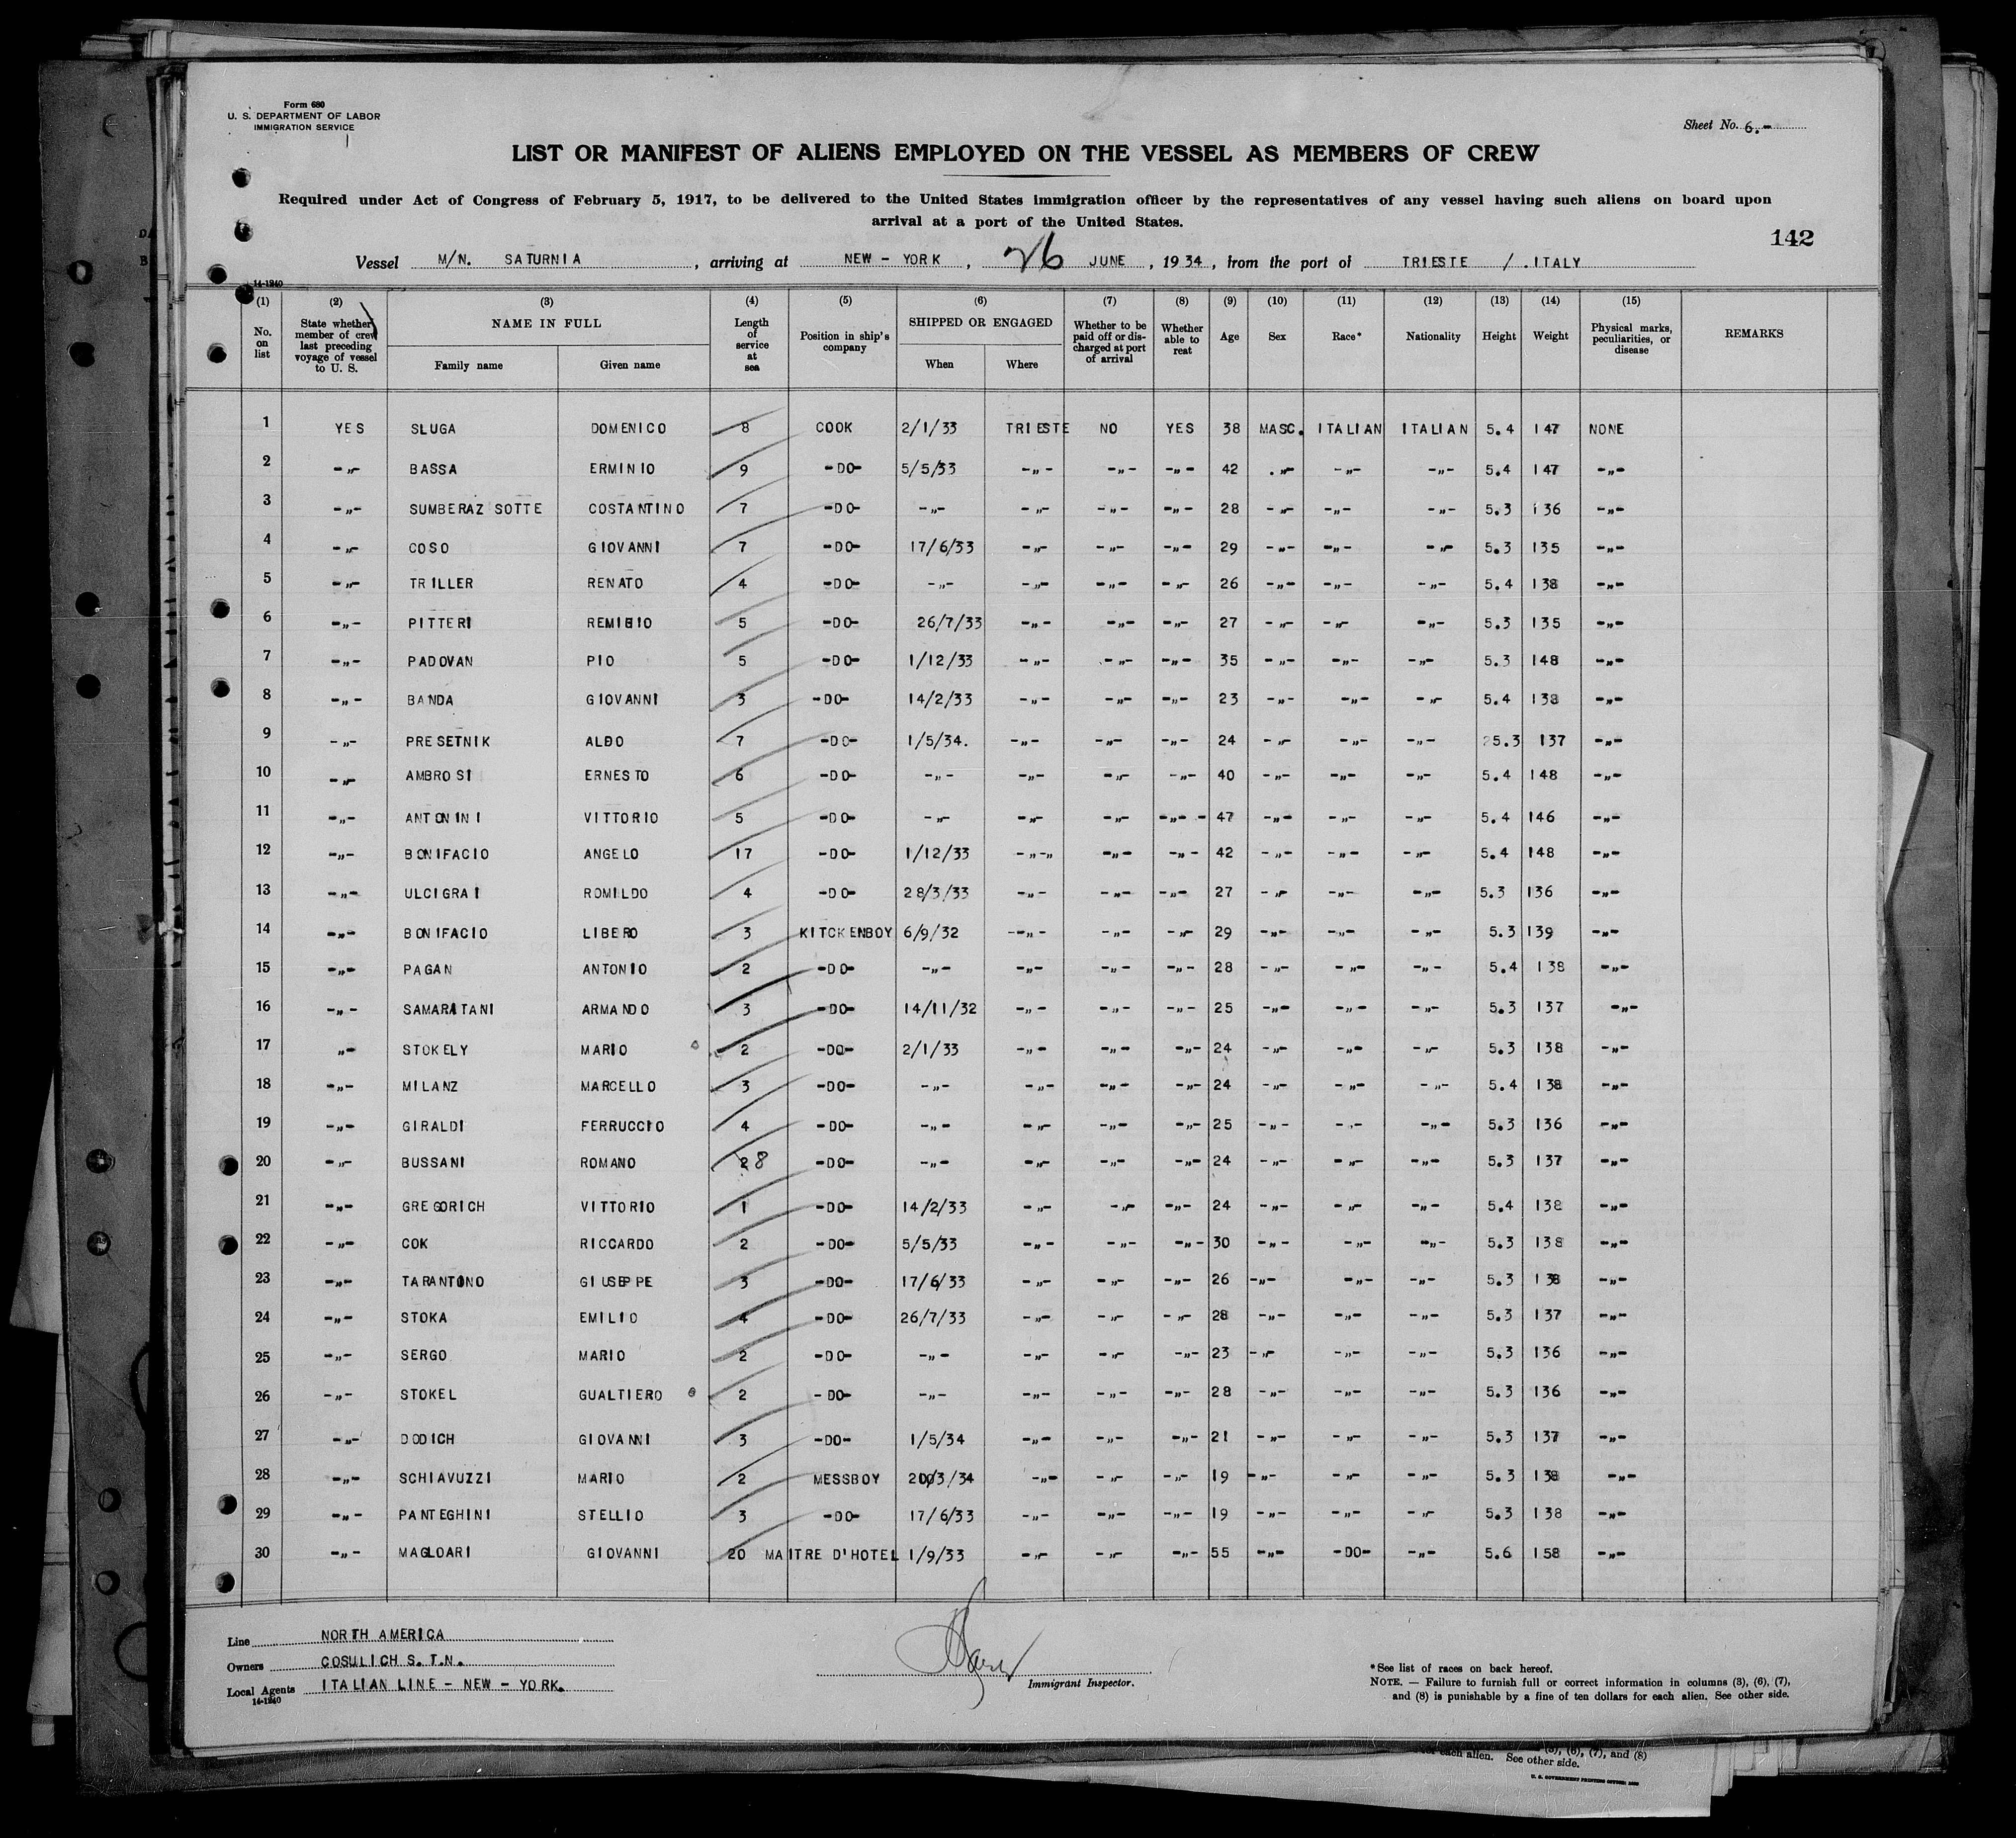 Form 680
U. S. DEPARTMENT OF LABOR
IMMIGRATION SERVICE
Sheet No. 6.-
LIST OR MANIFEST OF ALIENS EMPLOYED ON THE VESSEL AS MEMBERS OF CREW
Required under Act of Congress of February 5, 1917, to be delivered to the United States immigration officer by the representatives of any vessel having such aliens on board upon
arrival at a port of the United States.
142
Vessel M/N. SATURNIA , arriving at NEW - YORK , 26 JUNE , 1934 , from the port of TRIESTE / .ITALY
14-1240
(1) (2) (3) (4) (5) (6) (7) (8) (9) (10) (11) (12) (13) (14) (15)
No. on list | State whether member of crew last preceding voyage of vessel to U. S. | NAME IN FULL Family name Given name | Length of service at sea | Position in ship's company | SHIPPED OR ENGAGED When Where | Whether to be paid off or discharged at port of arrival | Whether able to reat | Age | Sex | Race* | Nationality | Height | Weight | Physical marks, peculiarities, or disease | REMARKS
1 YES SLUGA DOMENICO 8 COOK 2/1/33 TRIESTE NO YES 38 MASC. ITALIAN ITALIAN 5.4 147 NONE
2 -„- BASSA ERMINIO 9 -DO- 5/5/33 -„- -„- -„- 42 .„- -„- -„- 5.4 147 -„-
3 -„- SUMBERAZ SOTTE COSTANTINO 7 -DO- -„- -„- -„- -„- 28 -„- -„- -„- 5.3 136 -„-
4 -„- COSO GIOVANNI 7 -DO- 17/6/33 -„- -„- -„- 29 -„- -„- -„- 5.3 135 -„-
5 -„- TRILLER RENATO 4 -DO- -„- -„- -„- -„- 26 -„- -„- -„- 5.4 138 -„-
6 -„- PITTERI REMIGIO 5 -DO- 26/7/33 -„- -„- -„- 27 -„- -„- -„- 5.3 135 -„-
7 -„- PADOVAN PIO 5 -DO- 1/12/33 -„- -„- -„- 35 -„- -„- -„- 5.3 148 -„-
8 -„- BANDA GIOVANNI 3 -DO- 14/2/33 -„- -„- -„- 23 -„- -„- -„- 5.4 138 -„-
9 -„- PRESETNIK ALDO 7 -DO- 1/5/34. -„- -„- -„- 24 -„- -„- -„- 5.3 137 -„-
10 -„- AMBROSI ERNESTO 6 -DO- -„- -„- -„- -„- 40 -„- -„- -„- 5.4 148 -„-
11 -„- ANTONINI VITTORIO 5 -DO- -„- -„- -„- -„-- 47 -„- -„- -„- 5.4 146 -„-
12 -„- BONIFACIO ANGELO 17 -DO- 1/12/33 -„-„ -„- -„- 42 -„- -„- -„- 5.4 148 -„-
13 -„- ULCIGRAI ROMILDO 4 -DO- 28/3/33 -„- -„- -„- 27 -„- -„- -„- 5.3 136 -„-
14 -„- BONIFACIO LIBERO 3 KITCKENBOY 6/9/32 --„- -„- -„- 29 -„- -„- -„- 5.3 139 -„-
15 -„- PAGAN ANTONIO 2 -DO- -„- -„- -„- -„- 28 -„- -„- -„- 5.4 138 -„-
16 -„- SAMARITANI ARMANDO 3 -DO- 14/11/32 -„- -„- -„- 25 -„- -„- -„- 5.3 137 -„-
17 „- STOKELY MARIO 2 -DO- 2/1/33 -„- -„- -„- 24 -„- -„- -„- 5.3 138 -„-
18 -„- MILANZ MARCELLO 3 -DO- -„- -„- -„- -„- 24 -„- -„- -„- 5.4 138 -„-
19 -„- GIRALDI FERRUCCIO 4 -DO- -„- -„- -„- -„- 25 -„- -„- -„- 5.3 136 -„-
20 -„- BUSSANI ROMANO 28 -DO- -„- -„- -„- -„- 24 -„- -„- -„- 5.3 137 -„-
21 -„- GREGORICH VITTORIO 1 -DO- 14/2/33 -„- -„- -„- 24 -„- -„- -„- 5.4 138 -„-
22 -„- COK RICCARDO 2 -DO- 5/5/33 -„- -„- -„- 30 -„- -„- -„- 5.3 138 -„-
23 -„- TARANTONO GIUSEPPE 3 -DO- 17/6/33 -„- -„- -„- 26 -„- -„- -„- 5.3 138 -„-
24 -„- STOKA EMILIO 4 -DO- 26/7/33 -„- -„- -„- 28 -„- -„- -„- 5.3 137 -„-
25 -„- SERGO MARIO 2 -DO- -„- -„- -„- -„- 23 -„- -„- -„- 5.3 136 -„-
26 -„- STOKEL GUALTIERO 2 -DO- -„- -„- -„- -„- 28 -„- -„- -„- 5.3 136 -„-
27 -„- DODICH GIOVANNI 3 -DO- 1/5/34 -„- -„- -„- 21 -„- -„- -„- 5.3 137 -„-
28 -„- SCHIAVUZZI MARIO 2 MESSBOY 20/3/34 -„- -„- -„- 19 -„- -„- -„- 5.3 138 -„-
29 -„- PANTEGHINI STELLIO 3 -DO- 17/6/33 -„- -„- -„- 19 -„- -„- -„- 5.3 138 -„-
30 -„- MAGLOARI GIOVANNI 20 MAITRE D'HOTEL 1/9/33 -„- -„- -„- 55 -„- -DO- -„- 5.6 158 -„-
Line NORTH AMERICA
Owners COSULICH S.T.N.
Local Agents ITALIAN LINE - NEW - YORK.
14-1240
Immigrant Inspector.
*See list of races on back hereof.
NOTE. — Failure to furnish full or correct information in columns (3), (6), (7),
and (8) is punishable by a fine of ten dollars for each alien. See other side.
(6), (7), and (8)
each alien. See other side.
U. S. GOVERNMENT PRINTING OFFICE